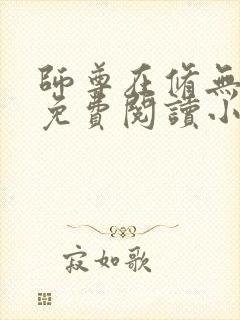 師尊在脩無
免費閱讀小
寂如歌